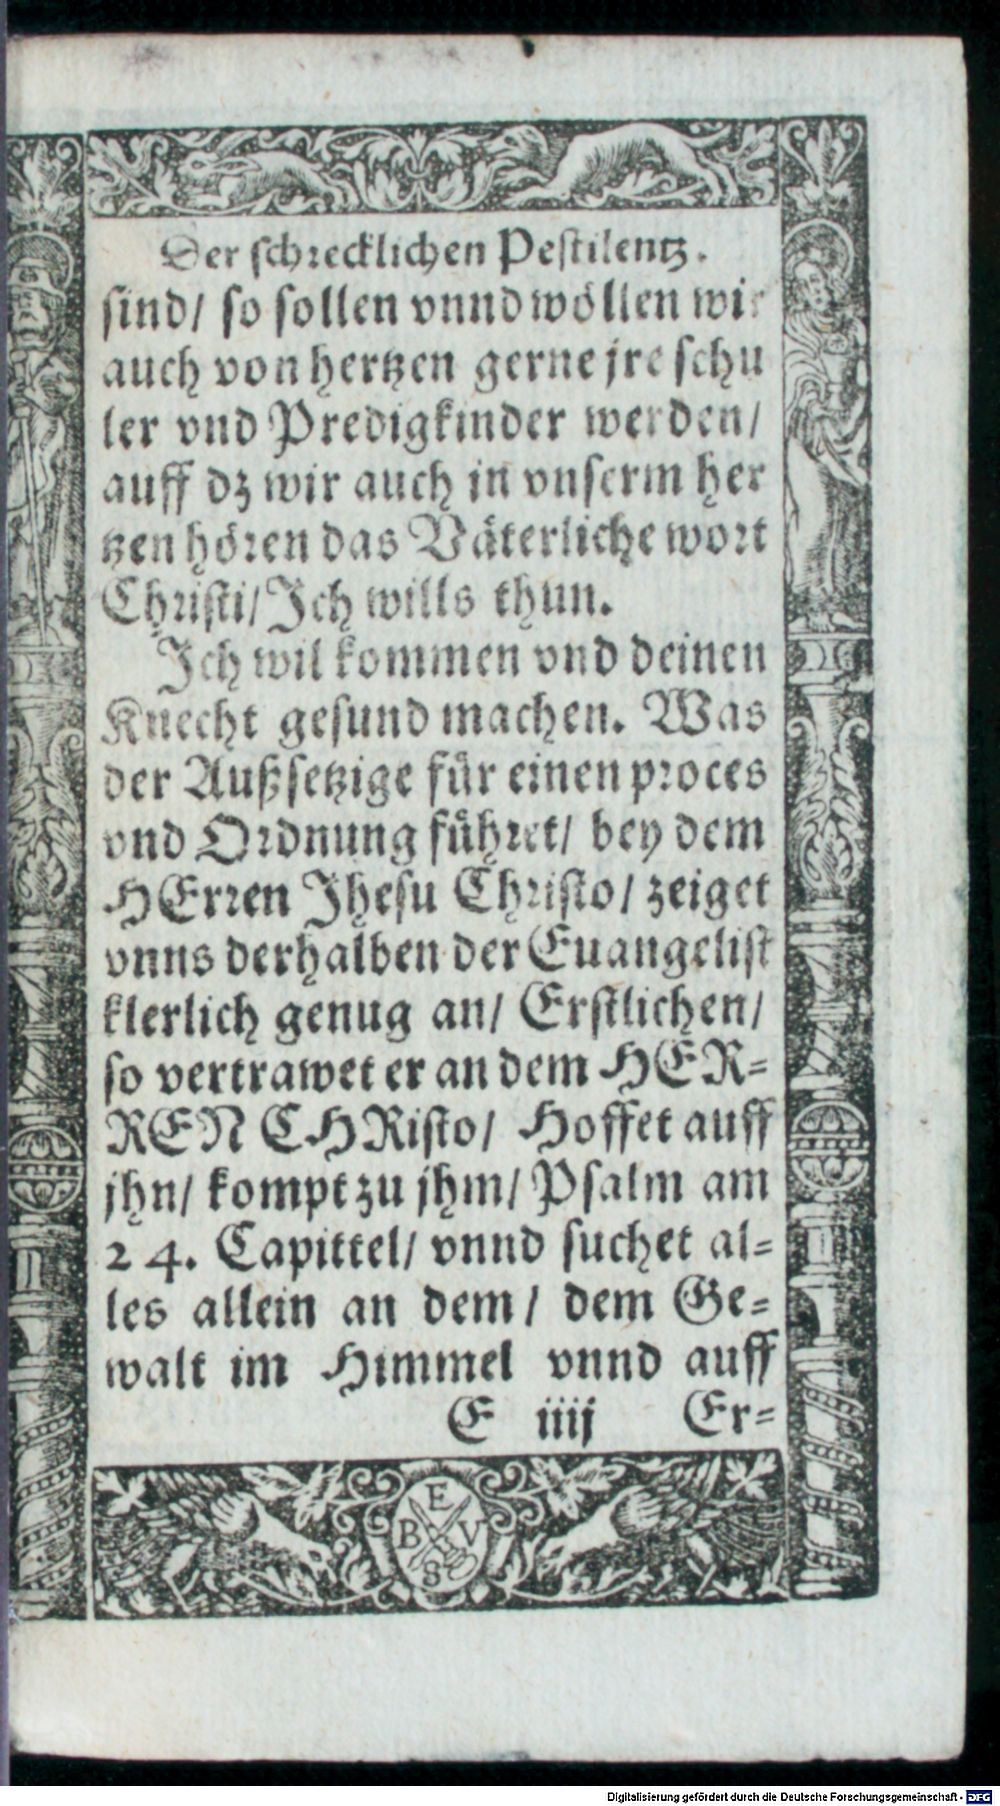 Der schrecklichen Pestilentz.
sind/ so sollen vnnd wöllen wir
auch von hertzen gerne jre schu
ler vnd Predigkinder werden/
auff dz wir auch in vnserm her
tzen hören das Väterliche wort
Christi/ Ich wills thun.
Ich wil kommen vnd deinen
Knecht gesund machen. Was
der Außsetzige für einen proces
vnd Ordnung führet/ bey dem
HErren Jhesu Christo/ zeiget
vnns derhalben der Euangelist
klerlich genug an/ Erstlichen/
so vertrawet er an dem HER-
REN CHRisto/ Hoffet auff
jhn/ kompt zu jhm/ Psalm am
24. Capittel/ vnnd suchet al-
les allein an dem/ dem Ge-
walt im Himmel vnnd auff
E iiij Er-
E
B V
S
Digitalisierung gefördert durch die Deutsche Forschungsgemeinschaft - DFG